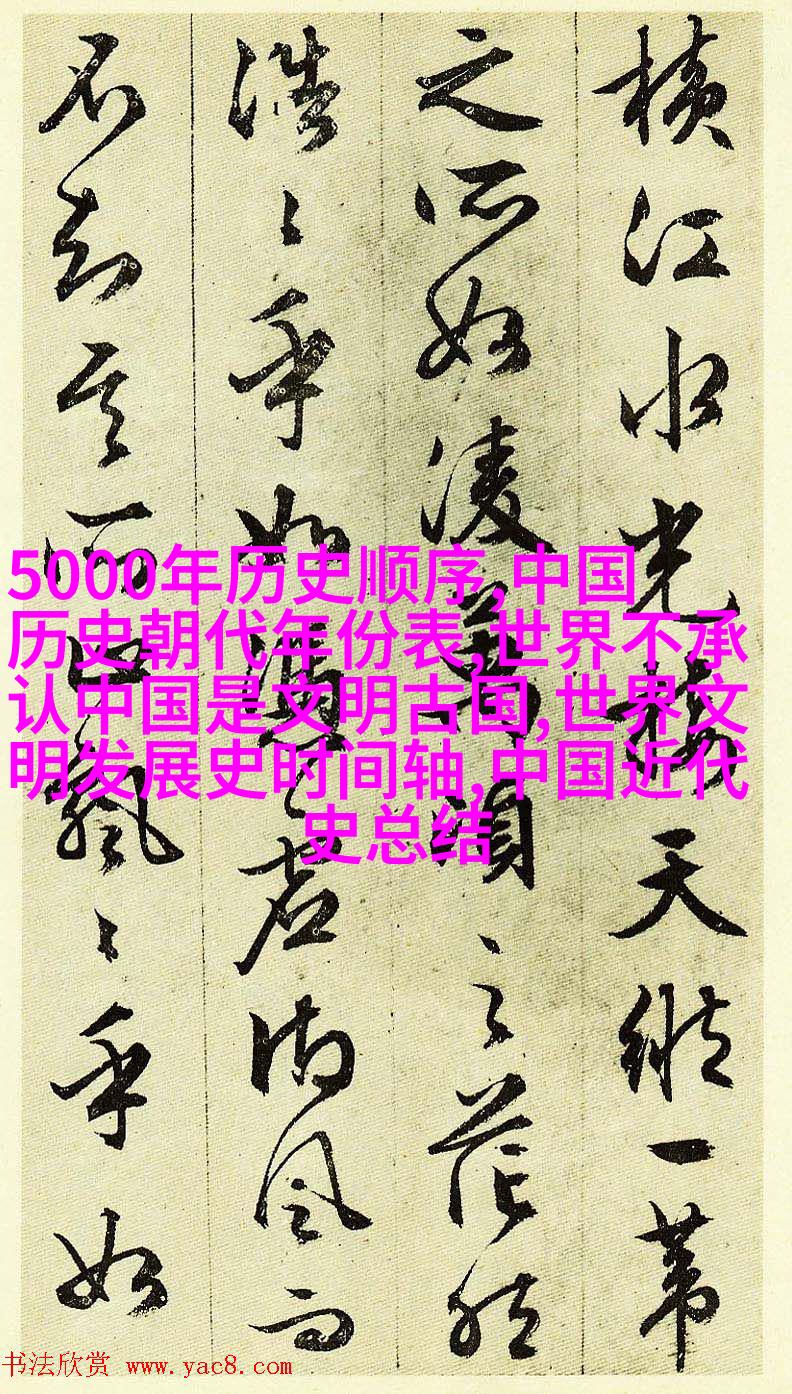 橫江水光接天縱一葦
之所如凌萬頃之茫然
浩〻乎如馮虛御風而
不知其所止飄〻乎如
5000年历史顺序,中国
历史朝代年份表,世界不承
认中国是文明古国,世界文
明发展史时间轴,中国近代
史总结
书法欣赏 www.yac8.com